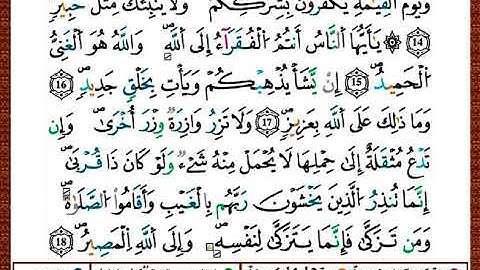 وَيَوْمَ الْقِيَٰمَةِ يَكْفُرُونَ بِشِرْكِكُمْ وَلَا يُنَبِّئُكَ مِثْلُ خَبِيرٍ
14 يَٰٓأَيُّهَا النَّاسُ أَنتُمُ الْفُقَرَآءُ إِلَى اللَّهِ وَاللَّهُ هُوَ الْغَنِىُّ
الْحَمِيدُ 15 إِن يَّشَأْ يُذْهِبْكُمْ وَيَأْتِ بِخَلْقٍ جَدِيدٍ 16
وَمَا ذَٰلِكَ عَلَى اللَّهِ بِعَزِيزٍ 17 وَلَا تَزِرُ وَازِرَةٌ وِزْرَ أُخْرَىٰ وَإِن
تَدْعُ مُثْقَلَةٌ إِلَىٰ حِمْلِهَا لَا يُحْمَلْ مِنْهُ شَىْءٌ وَلَوْ كَانَ ذَا قُرْبَىٰٓ
إِنَّمَا تُنذِرُ الَّذِينَ يَخْشَوْنَ رَبَّهُم بِالْغَيْبِ وَأَقَامُوا۟ الصَّلَوٰةَ
وَمَن تَزَكَّىٰ فَإِنَّمَا يَتَزَكَّىٰ لِنَفْسِهِۦ وَإِلَى اللَّهِ الْمَصِيرُ 18